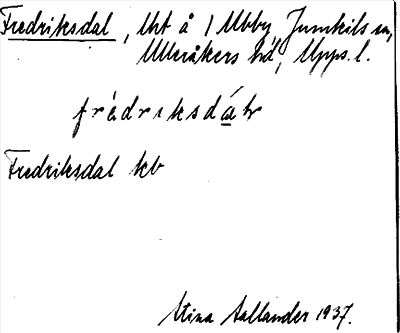 Fredriksdal, lht å 1 Ubby, Jumkils sn,
Ulleråkers hd, Upps. l.
frédriksdáɫr
Fredriksdal kb
Stina Sallander 1937.